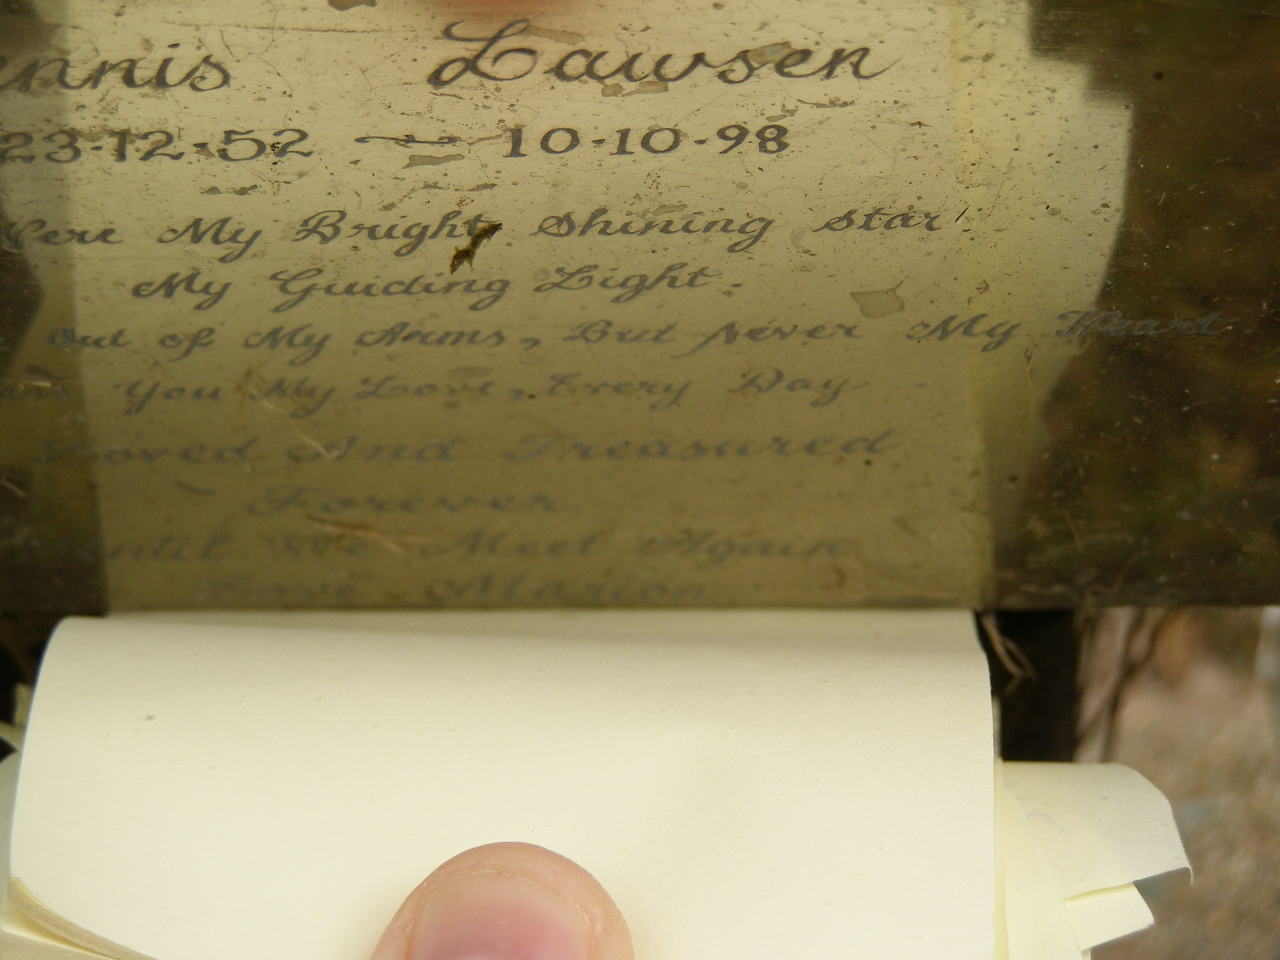 ennis Lawsen
23·12·52 ~ 10·10·98
Were My Bright Shining Star
My Guiding Light.
Out of My Arms, But Never My Heart
You My Love, Every Day
Loved And Treasured
Forever
Until We Meet Again
Love Marion